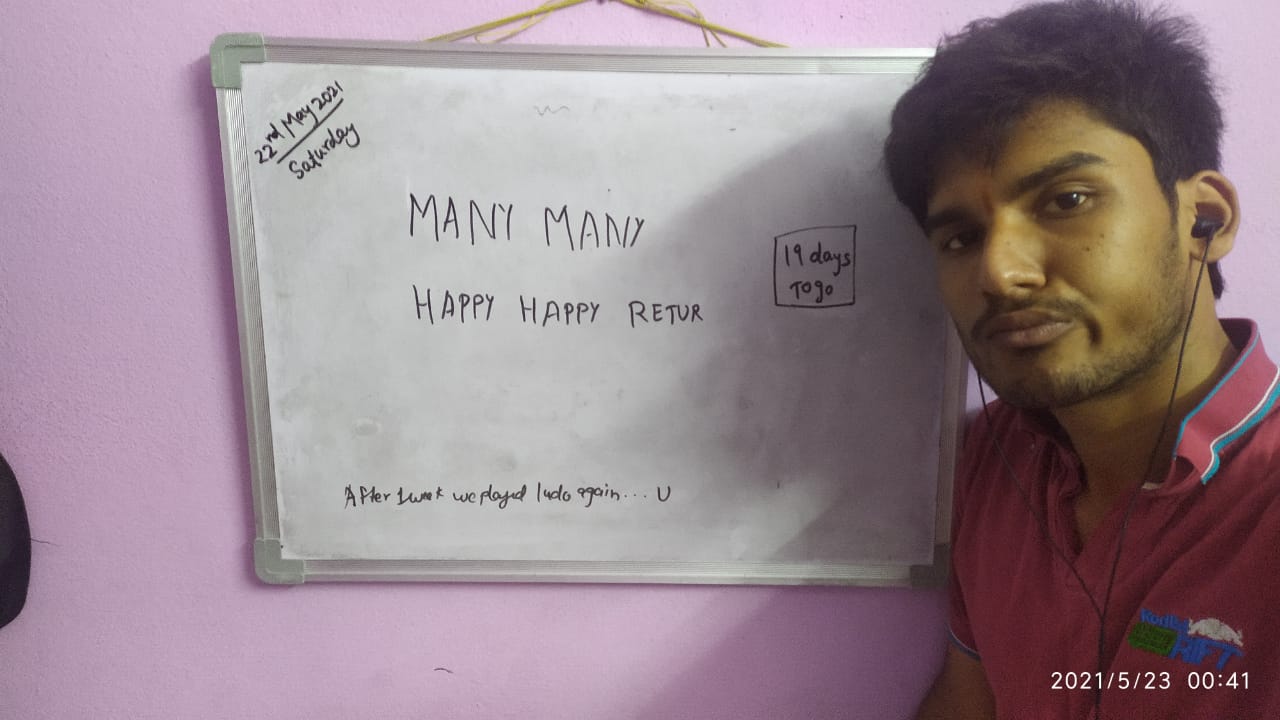 22nd May 2021
Saturday
MANY MANY
HAPPY HAPPY RETUR
19 days
To go
After 1 week we played ludo again... U
2021/5/23 00:41